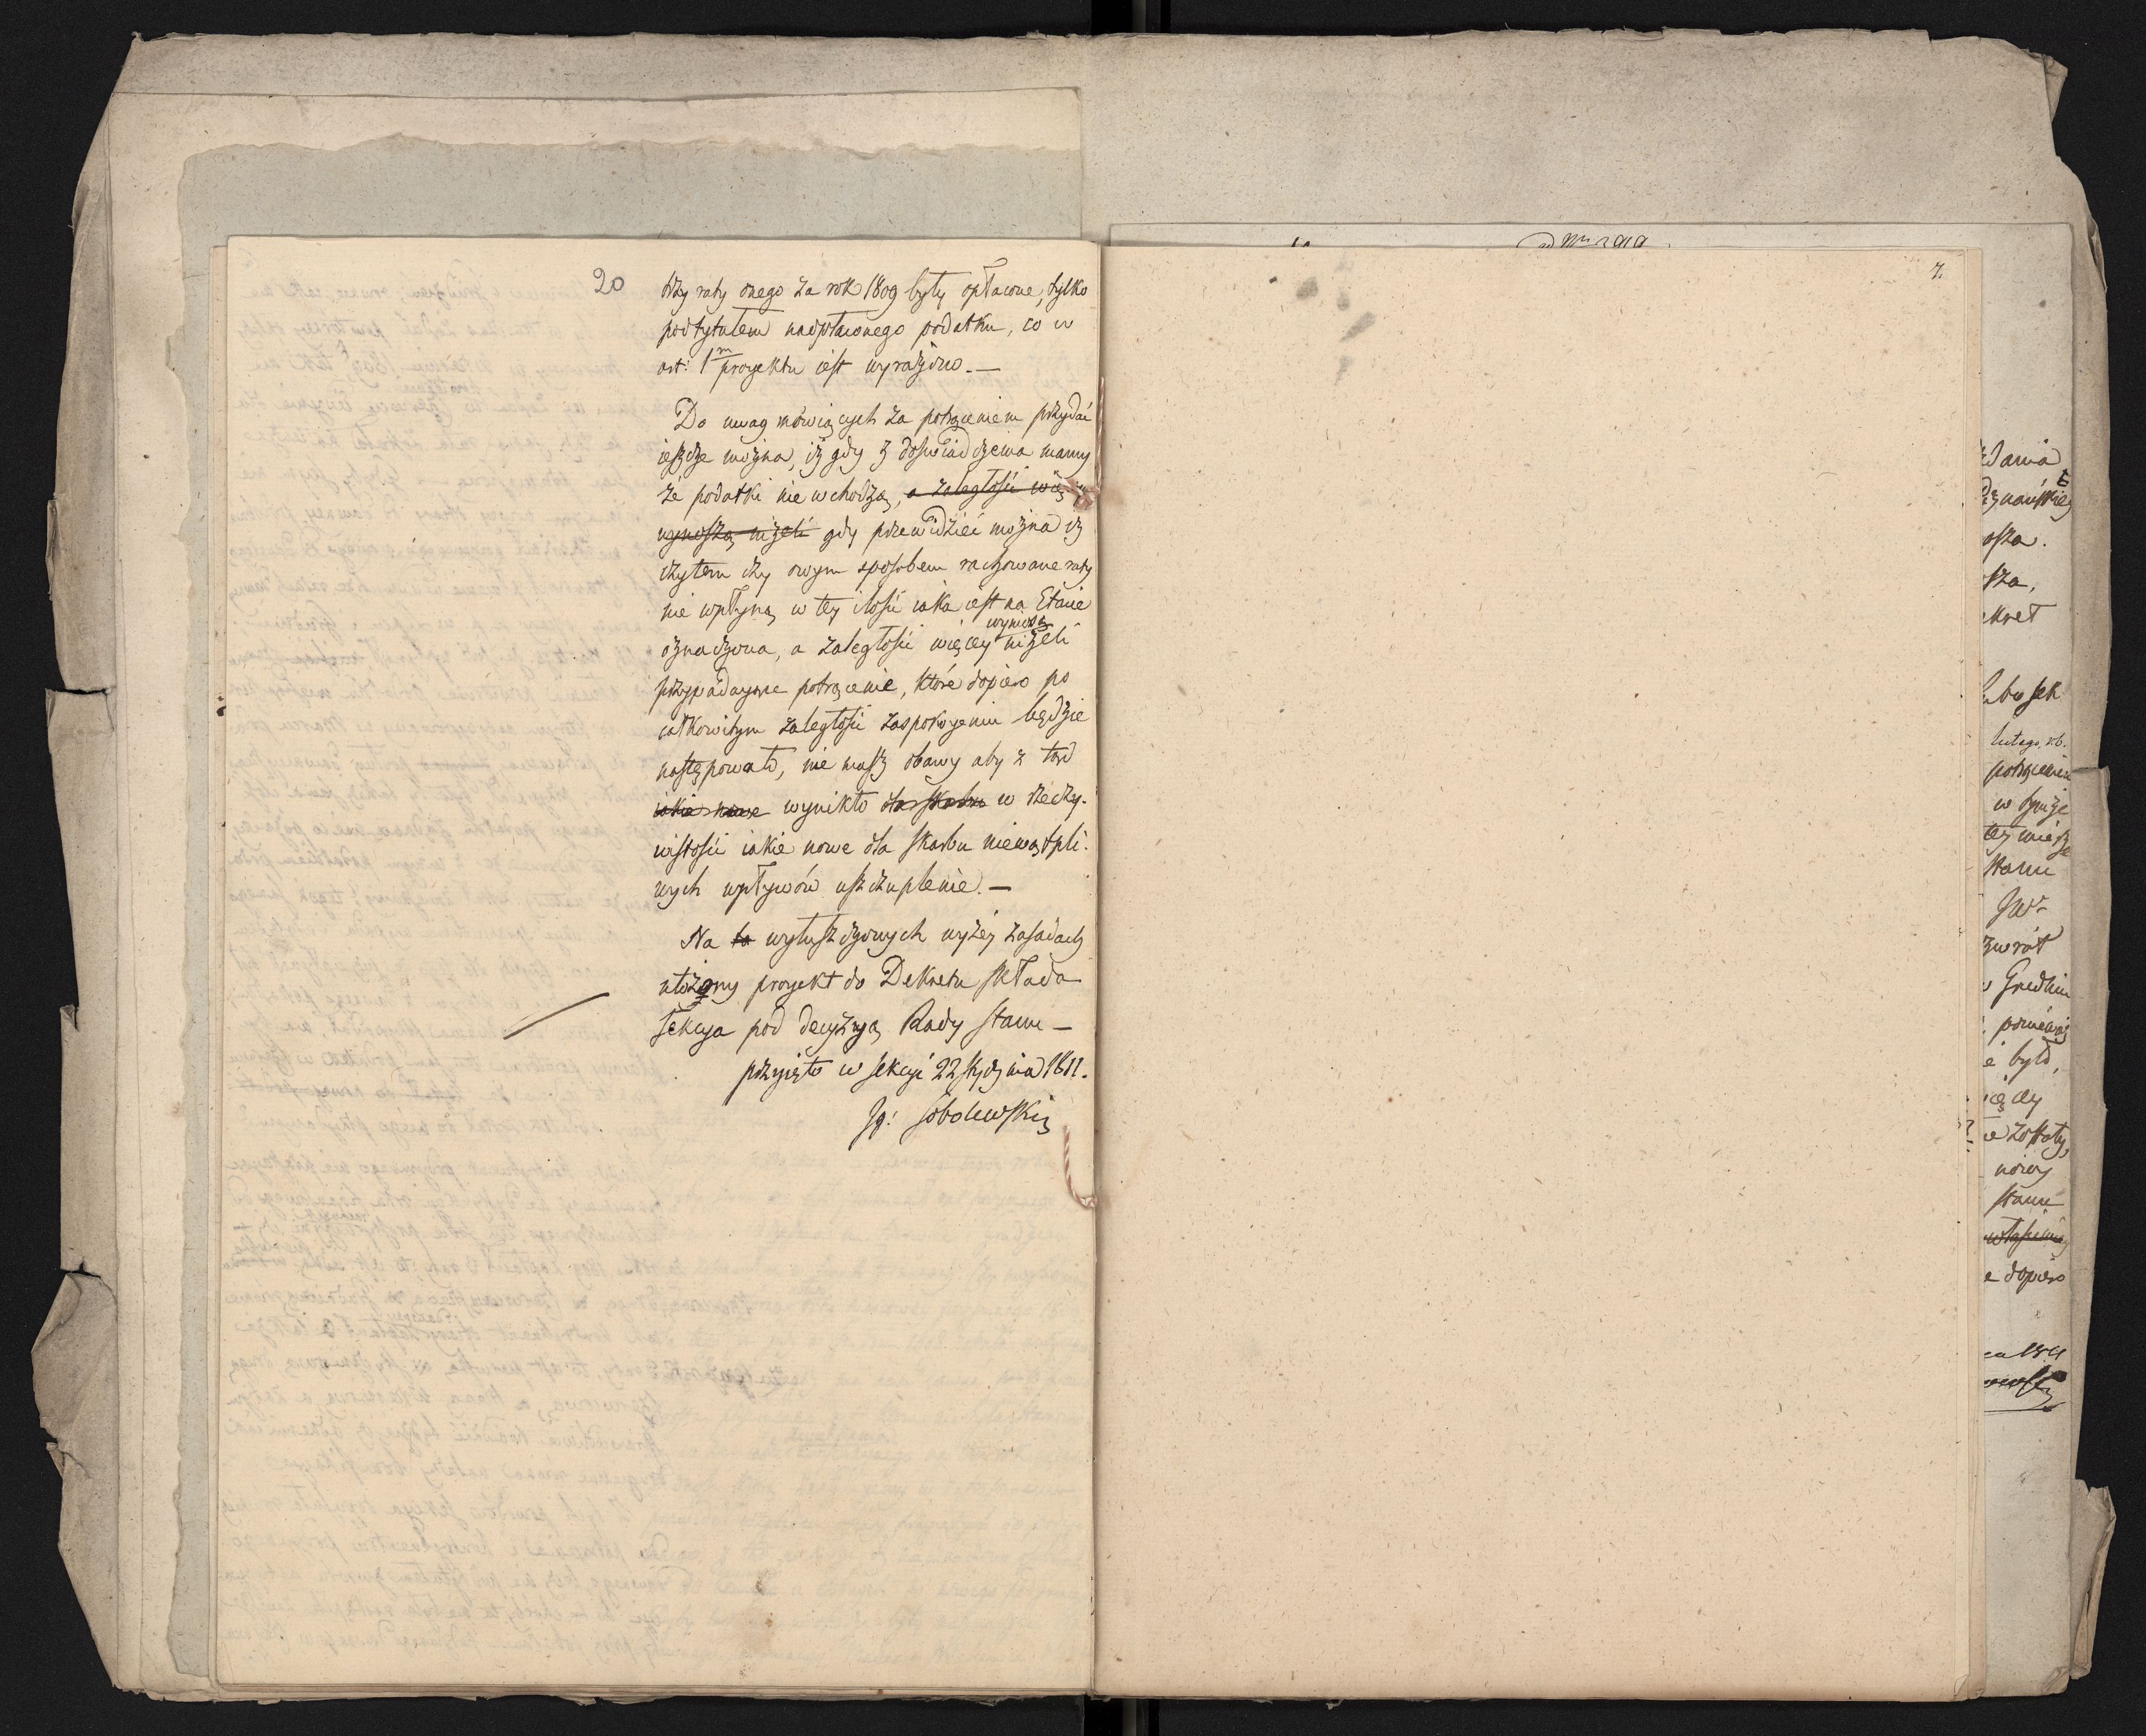 20
trzy raty onego za rok 1809 były opłacone, tylko
pod tytułem nadpłaconego podatku, co w
art: 1m proyektu iest wyrażono. —
Do uwag mówiących za potrąceniem przydać
ieszcze można, iż gdy z doświadczenia mamy
że podatki nie wchodzą, a zaległości więcey
wynoszą niżeli gdy przewidzieć można iż
czy tem czy owym sposobem rachowane raty
nie wpłyną w tey ilości iaka iest na Etacie
wynoszą
oznaczona, a zaległości więcey niżeli
przypadaiące potrącenie, które dopiero po
całkowitym zaległości zaspokoieniu będzie
następowało, nie masz obawy aby z tąd
iakie nowe wynikło dla skarbu w rzeczy-
wistości iakie nowe dla skarbu niewątpli-
wych wpływów uszczuplenie. —
Na to wyłuszczonych wyżey zasadach
ułożony proyekt do Dekretu składa
Sekcya pod decyzyą Rady Stanu —
przyięto w sekcyi 22 stycznia 1811.
Ig: Sobolewski
7.
lutego, r.b.
potrącenia
Stanu
zwrot
było,
Stanu
dopiero